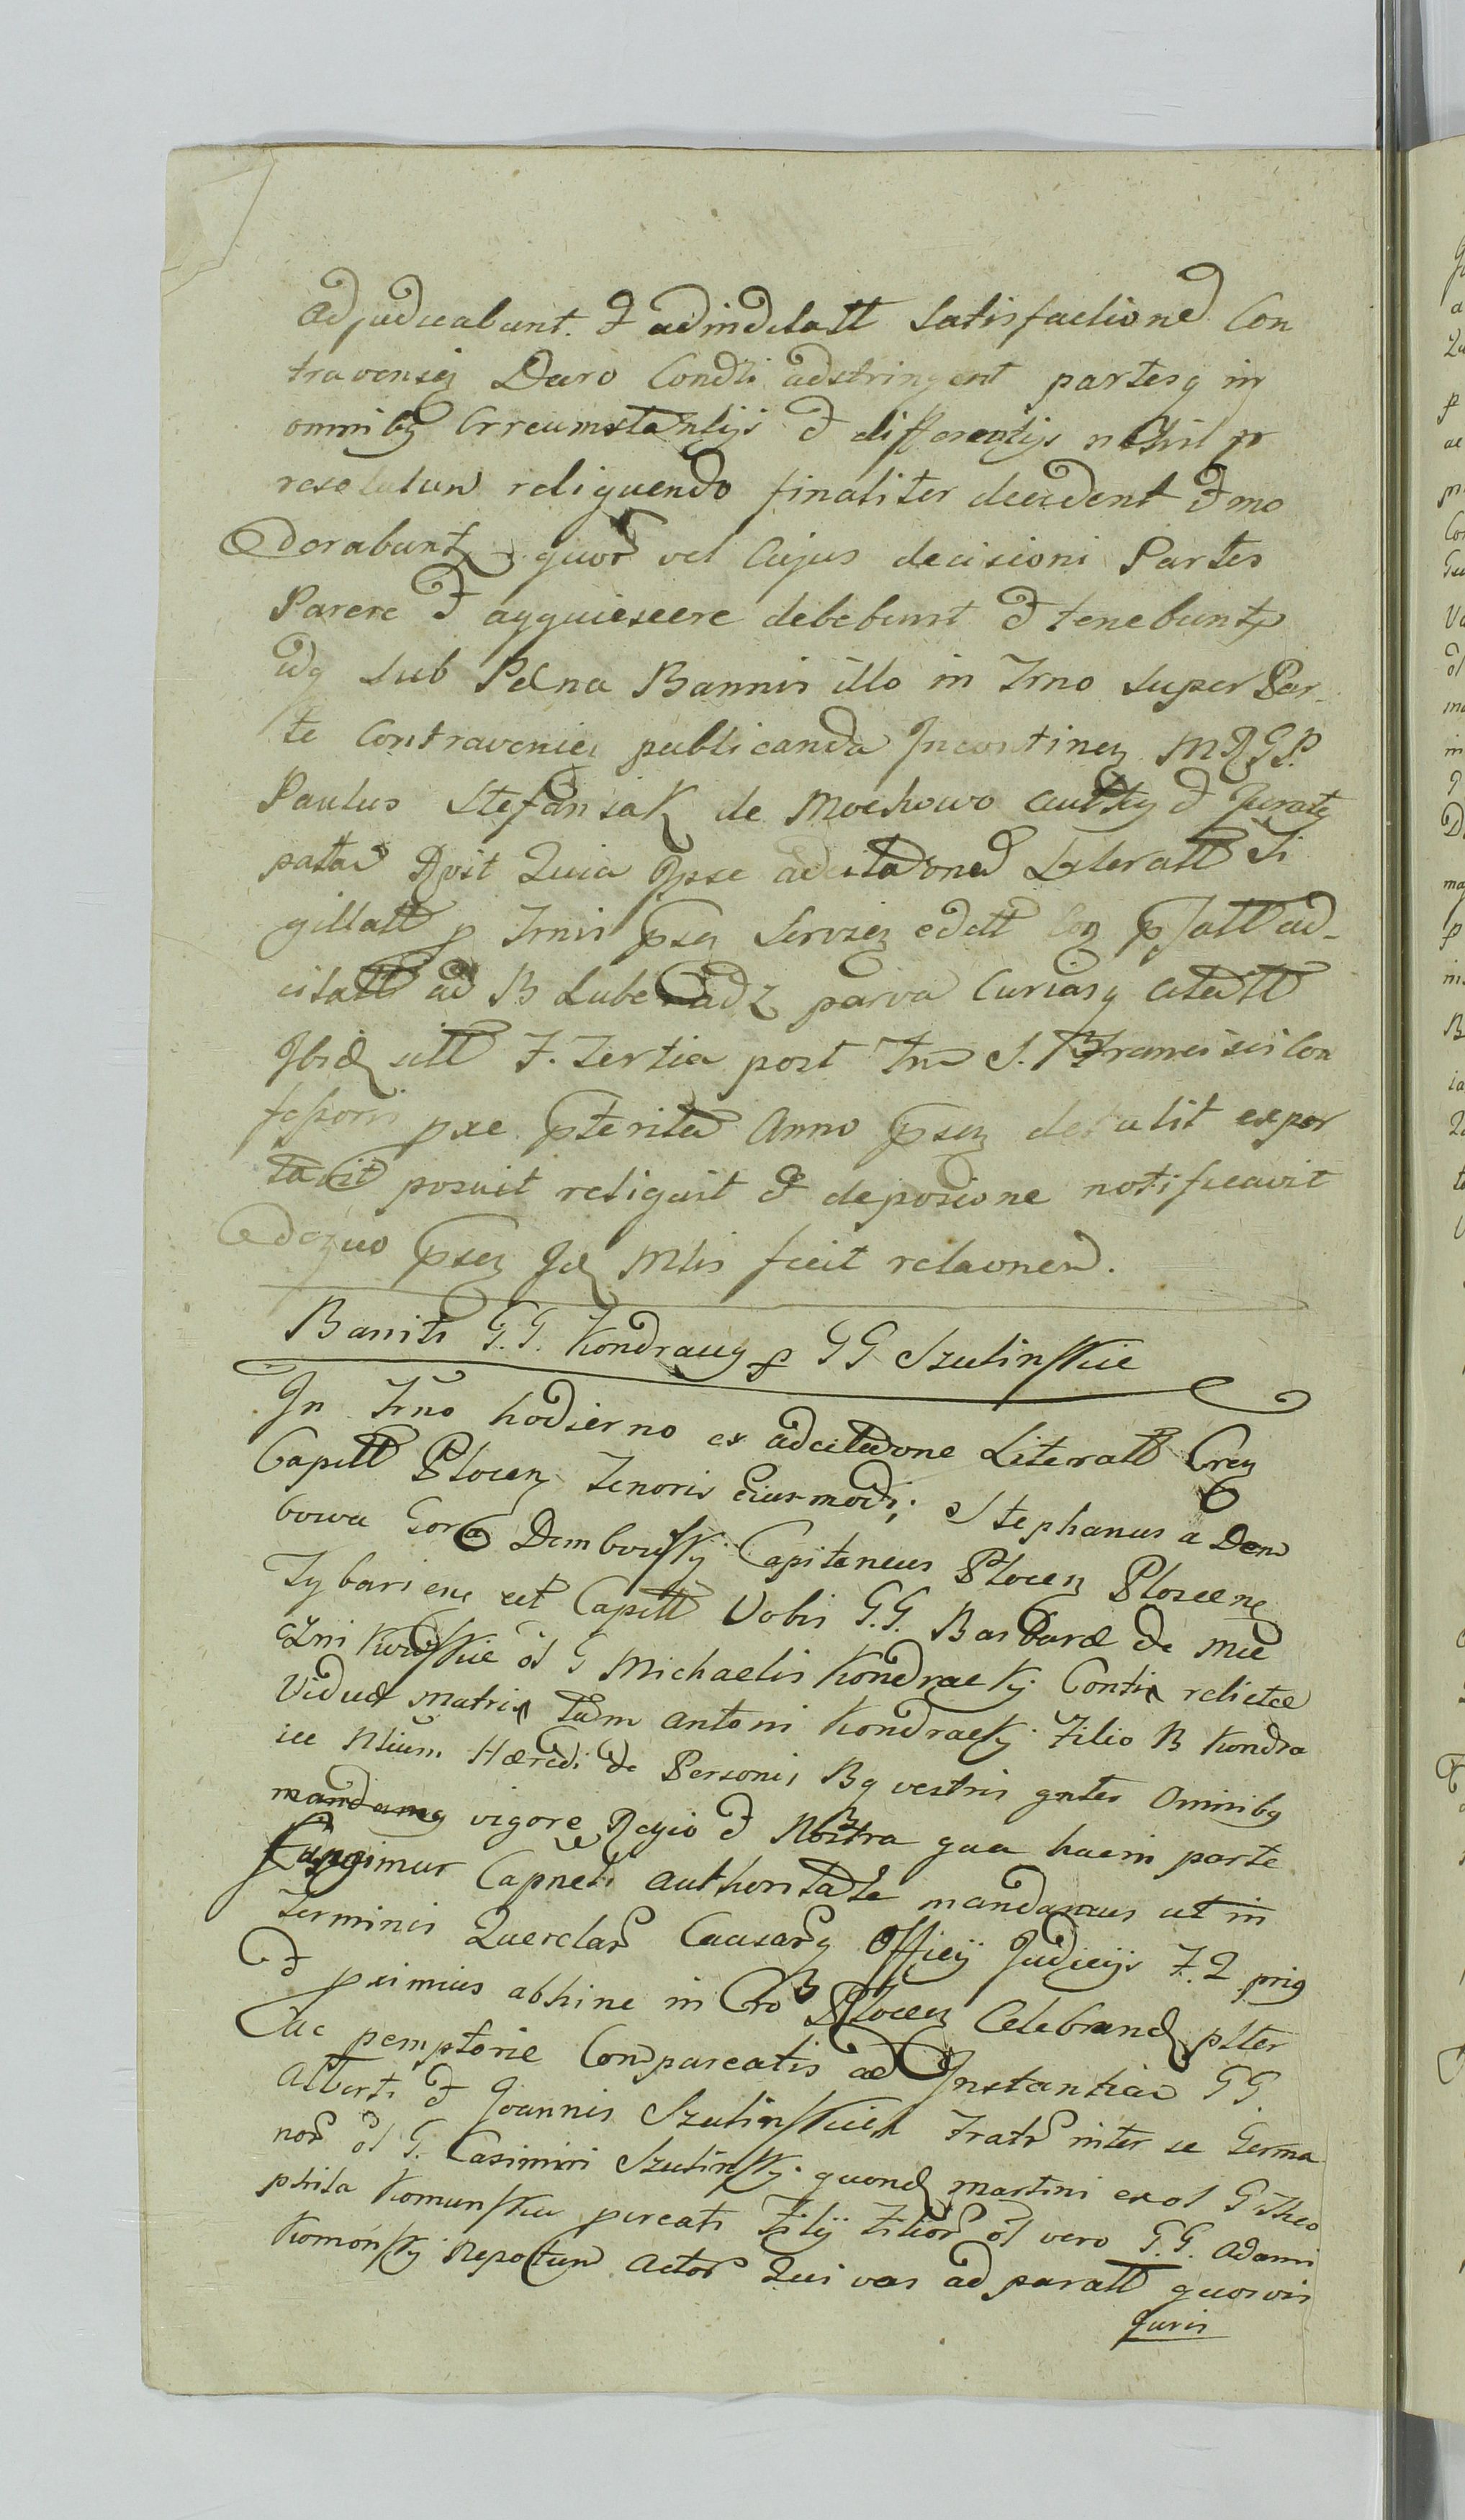 adjudicabunt. et adindebatt Satisfactioned Con
travenien Decro Condti adstringent partesq in
omnibq Circumstantijs et differentijs nihil ir
resolutum reliquendo finaliter decident et mo
derabuntr quor vel Cujus decisioni Partes
Parere et acquiescere debebunt et tenebuntr
idq sub Pæna Bannis illo in Trno super Par-
te Contravenien publicanda Incontinen MRGP.
Paulus Stefaniak de Mochowo authq et Juratq
patar Rvit Quia Ipse adcitaonem Literatt Si
gillatt p Trnis psen Servien editt Con psatt ad-
citatt ad B Luberadz parva Curiasq citatt
Ibid sitt F. Tertia post Fm S. Francisci Con
fessoris pxe pterita Anno psen detulit expor
tavit posuit reliquit et deposicione notificavit
de quo psen Id Mlis fecit relaonem.
Baniti G.G. Kondraccy p GG Szulinskie
In Trno hodierno ex adcitaone Literatt Cren
Capitt Plocen Tenoris Eiusmodi; Stephanus a Dem
bowa Gora Dembowsky Capitaneus Plocen Plocene
Zybariens cet Capitt Vobis G.G. Barbaræ de Mie
czni Kowskie ol G Michaelis Kondracky Contis relictæ
Viduæ Matri Tum Antoni Kondracky Filio B Kondra
ice Ntium Hæredi de Personis Bq vestris gnter Omnibq
mandamq vigore Regio et Nostra qua hacin parte
Fungimur Capneli Authoritate mandamus ut in
Terminis Querelar Causarq Officij Judicijs F. 2 prig
et pximius abhinc in Cro Plocen Celebrand plter
Ac pemptorie Compareatis ad Instantiam GG.
Alberti et Joannis Szulinskich Fratr inter se Germa
nor ol G. Casimiri Szulinsky quond Martini ex ol G Theo
phila Komunska pcreati Filij Filior ol vero G.G. Adami
Komonsky Nepotum Actor Qui vos ad paratt quosvis
Juris